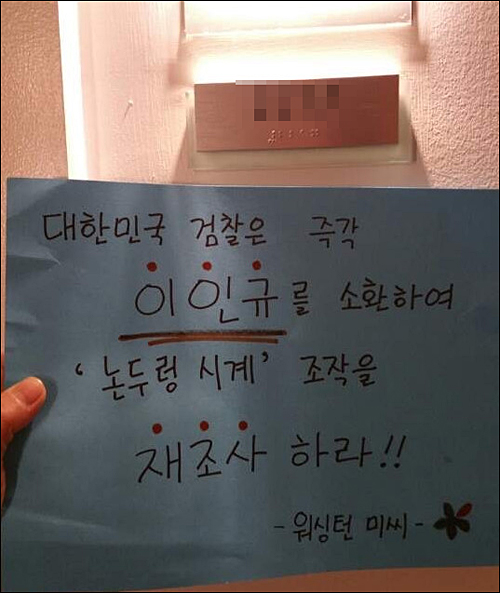 대한민국 검찰은 즉각
이인규를 소환하여
'논두렁 시계' 조작을
재조사 하라!!
- 워싱턴 미씨 -